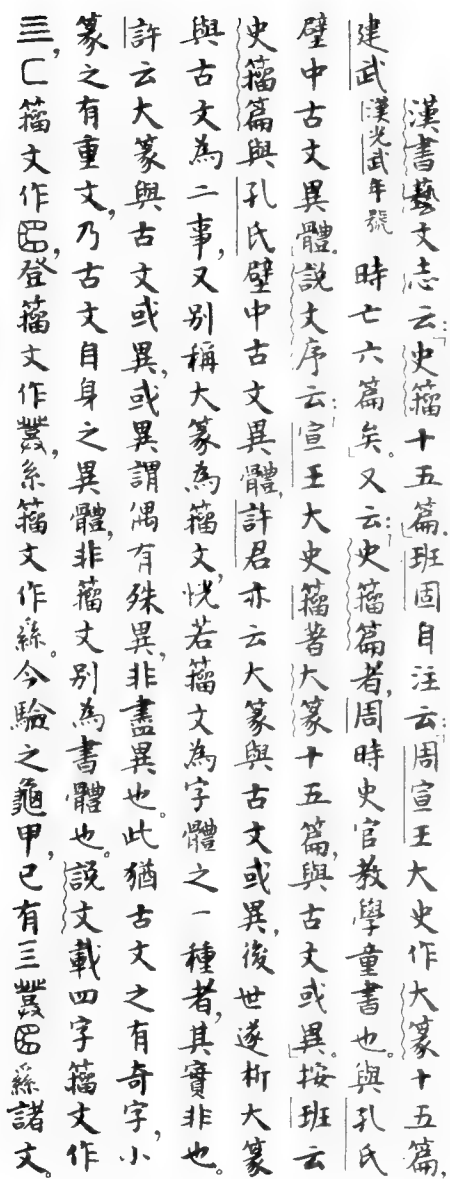 漢書藝文志云：「史籀十五篇。」班固自注云：「周宣王大史作大篆十五篇，
建武漢光武年號時亡六篇矣。」又云：「史籀篇者，周時史官教學童書也。與孔氏
壁中古文異體。」説文序云：「宣王大史籀著大篆十五篇，與古文或異。」按班云
史籀篇與孔氏壁中古文異體，許君亦云大篆與古文或異，後世遂析大篆
與古文為二事，又別稱大篆為籀文，怳若籀文為字體之一種者，其實非也。
許云大篆與古文或異，或異謂偶有殊異，非盡異也。此猶古文之有奇字，小
篆之有重文，乃古文自身之異體，非籀文別為書體也。説文載四字籀文作
亖，匚籀文作，登籀文作，系籀文作。今驗之龜甲，已有諸文。